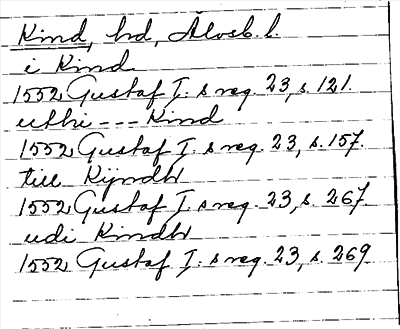 Kind, hd, Älvsb. l.
i Kind
1552 Gustaf I:s reg. 23, s. 121.
uthi --- Kind
1552 Gustaf I:s reg. 23, s. 157.
till Kijndh
1552 Gustaf I:s reg. 23, s. 267.
udi Kindh
1552 Gustaf I:s reg. 23, s. 269.